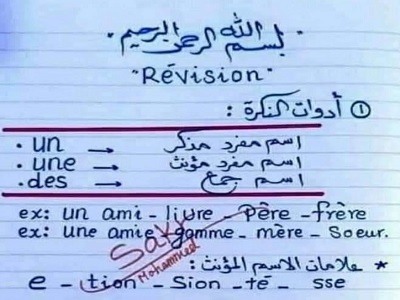 بسم الله الرحمن الرحيم
"Révision"
① أدوات النكرة :
. un → اسم مفرد مذكر
. une → اسم مفرد مؤنث
. des → اسم جمع
ex: un ami - livre - Père - frère
ex: une amie - gomme - mère - Soeur.
Saky
Mohammed
* علامات الاسم المؤنث :
e - tion - Sion - té - sse